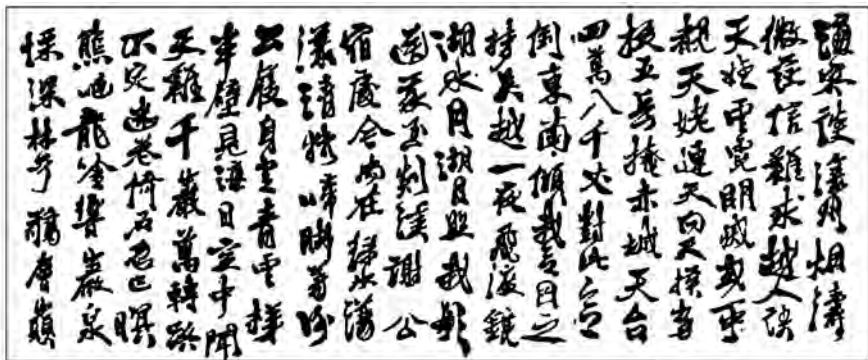 海客談瀛洲烟濤
微茫信難求越人語
天姥雲霓明滅或可
覩天姥連天向天橫勢
拔五岳掩赤城天台
四萬八千丈對此欲
倒東南傾我欲因之
夢吳越一夜飛渡鏡
湖水月湖月照我影
送我至剡溪謝公
宿處今尚在綠水蕩
漾清猿啼脚著謝
公屐身登青雲梯
半壁見海日空中聞
天雞千巖萬轉路
不定迷花倚石忽已暝
熊咆龍吟響巖泉
慄深林兮驚層巔